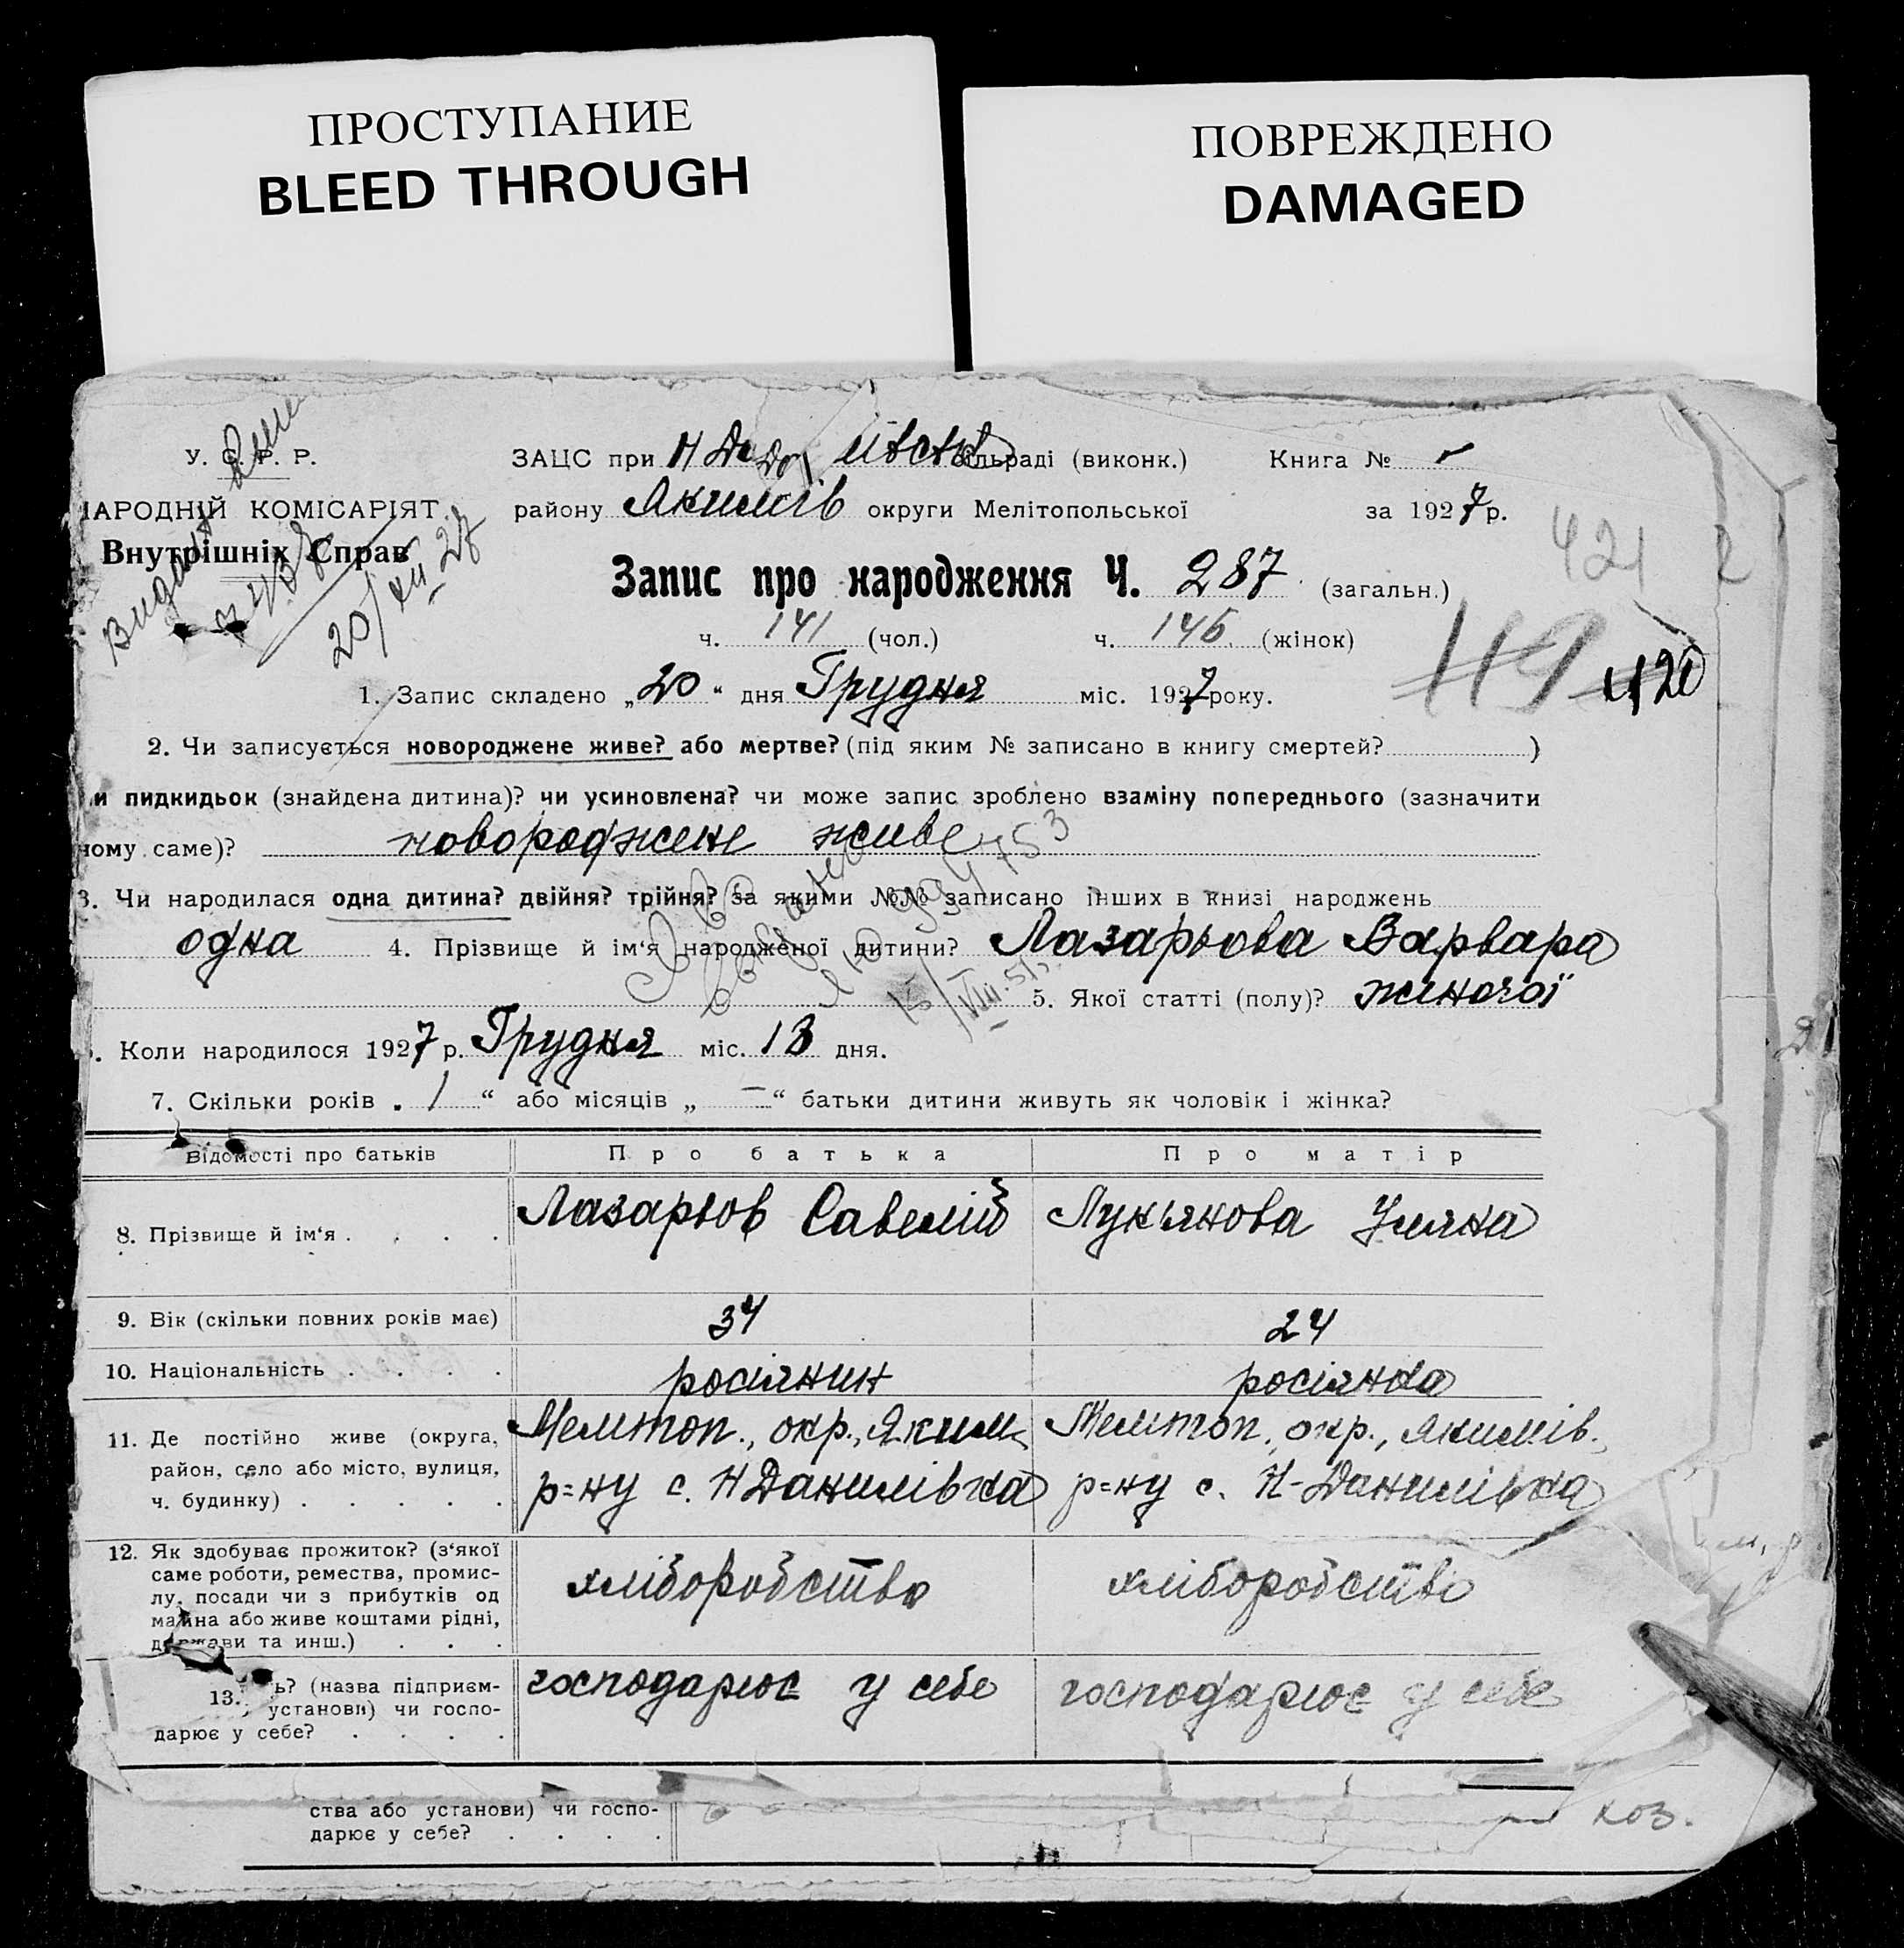 ПРОСТУПАНИЕ
BLEED THROUGH
ПОВРЕЖДЕНО
DAMAGED
У. С. Р. Р.
НАРОДНІЙ КОМІСАРІЯТ
Внутрішніх Справ
Видана
20/XII 27
ЗАЦС при сільраді (виконк.) Книга №
району Якимів округи Мелітопольської за 1927 р.
421
Запис про народження Ч. 287 (загальн.)
ч. 141 (чол.) ч. 146 (жінок)
419 420
1. Запис складено „20“ дня Грудня міс. 1927 року.
2. Чи записується новороджене живе? або мертве? (під яким № записано в книгу смертей? )
и пидкидьок (знайдена дитина)? чи усиновлена? чи може запис зроблено взаміну попереднього (зазначити
чому саме)? новороджене живе
3. Чи народилася одна дитина? двійня? трійня? за якими №№ записано інших в книзі народжень
одна 4. Прізвище й ім‘я народженої дитини? Лазарьова Варвара
5. Якої статті (полу)? жиночої
VIII 51
. Коли народилося 1927 р. Грудня міс. 13 дня.
7. Скільки років „ 1 “ або місяців „ — “ батьки дитини живуть як чоловік і жінка?
Відомості про батьків Про батька Про матір
8. Прізвище й ім‘я . . . . Лазарьов Савелій Лук'янова Уляна
9. Вік (скільки повних років має) 34 24
10. Національність . . . . росіянин росіянка
11. Де постійно живе (округа, район, село або місто, вулиця, ч. будинку) . . . . .
Мелітоп., окр., Яким. р=ну с. Н Данилівка
Мелітоп., окр., Якимів. р=ну с. Н-Данилівка
12. Як здобуває прожиток? (з‘якої
саме роботи, ремества, промис-
лу, посади чи з прибутків од
майна або живе коштами рідні,
держави та инш.) . . .
хліборобство хліборобство
13. ь? (назва підприєм-
установи) чи госпо-
дарює у себе? . . . .
господарює у себе господарює у себе
ства або установи) чи госпо-
дарює у себе? . . . .
хоз.